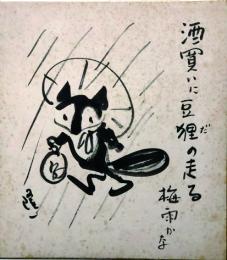 酒買いに豆狸の走る
だ
梅雨かな